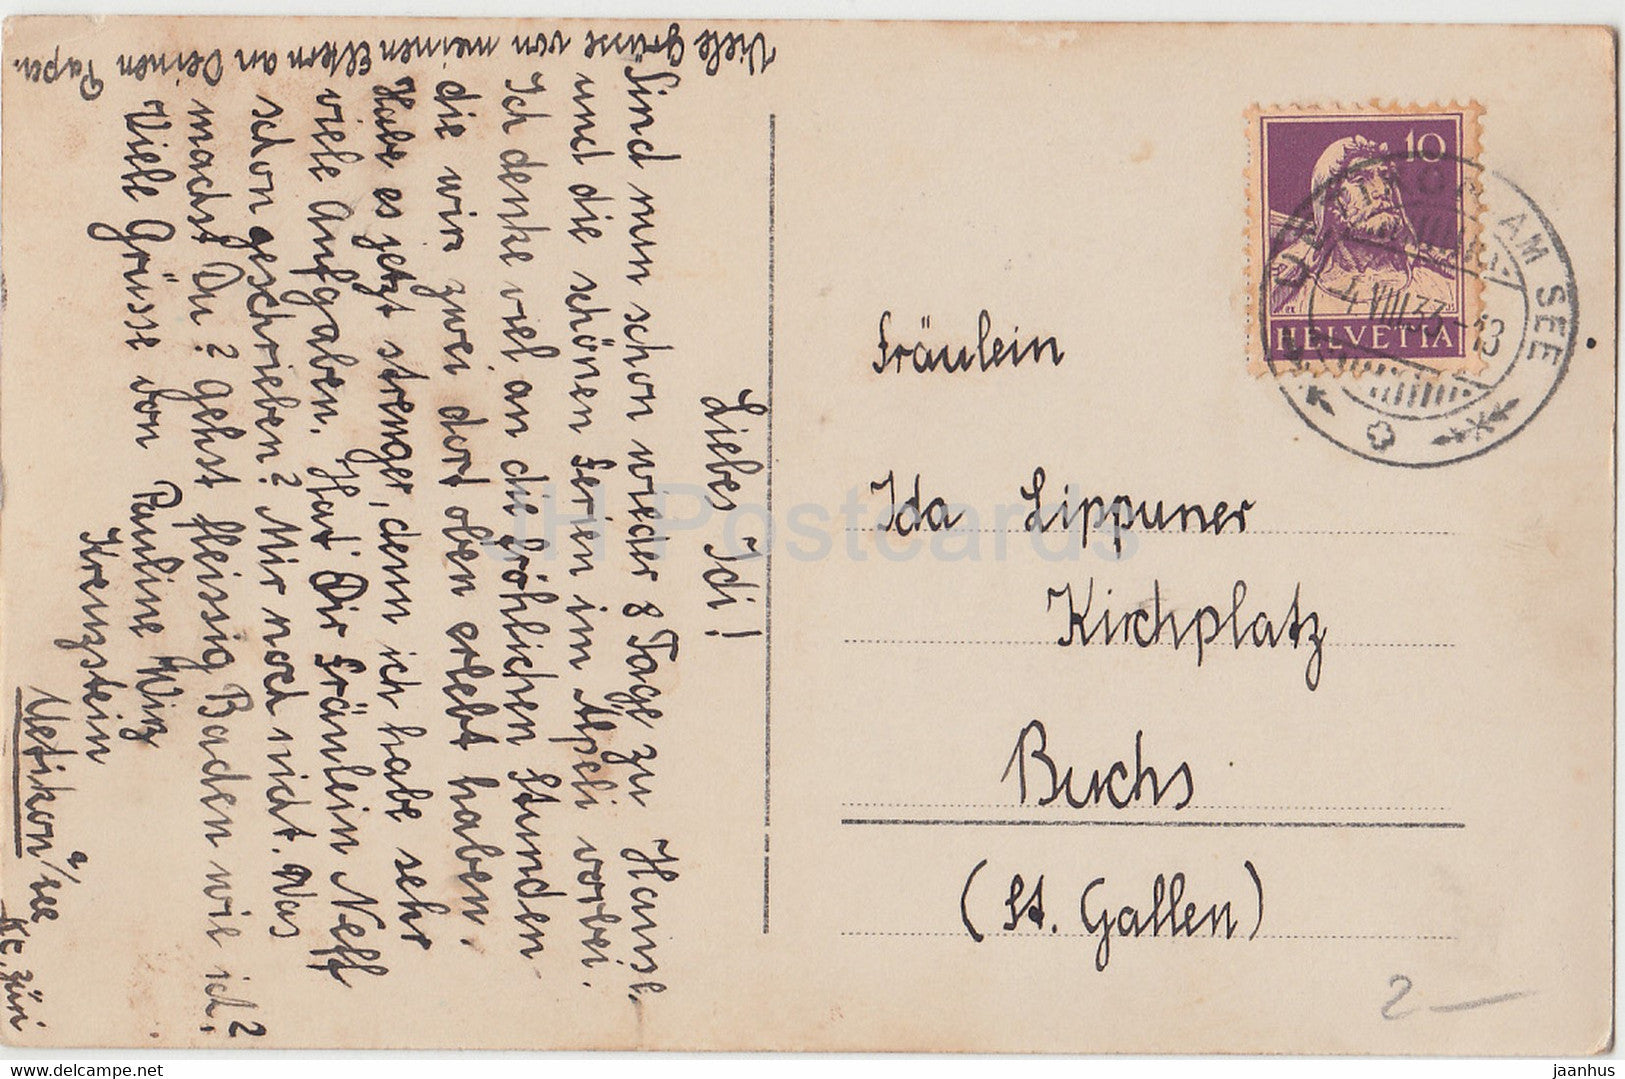 Liebes Idi!
Sind nun schon wieder 8 Tage zu Hause,
und die schönen Ferien im Alpeli vorbei.
Ich denke viel an die fröhlichen Stunden
die wir zwei dort oben erlebt haben.
Habe es jetzt strenger, denn ich habe sehr
viele Aufgaben. Hat Dir Fräulein Neff
schon geschrieben? Mir noch nicht. Was
machst Du? Gehst fleissig Baden wie ich?
Viele Grüsse von Pauline Wirz
Kreuzstein
Uetikon a/see
Kt. Züri
Viele Grüsse von meinen Eltern an Deinen Papa.
Fräulein
Ida Lippuner
Kirchplatz
Buchs
(St. Gallen)
10
HELVETIA
AM SEE
4.VIII.33-13
2—
JH Postcards
delcampe.net
jaanhus